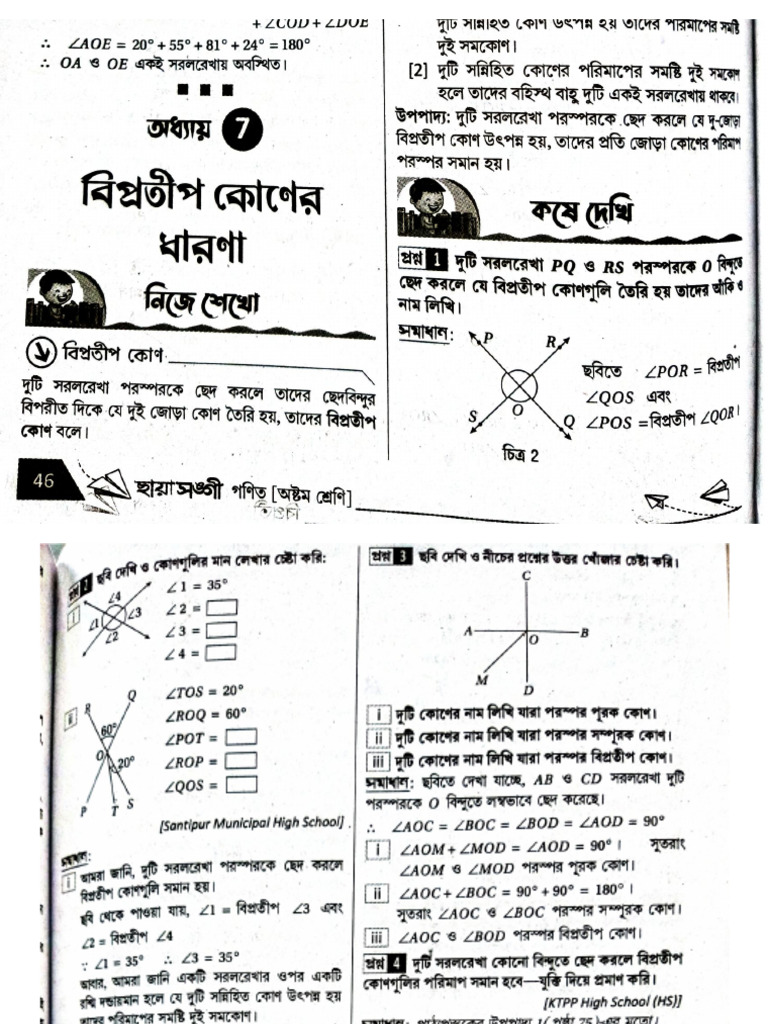 + ∠COD + ∠DOE
∴ ∠AOE = 20° + 55° + 81° + 24° = 180°
∴ OA ও OE একই সরলরেখায় অবস্থিত।
অধ্যায় 7
বিপ্রতীপ কোণের
ধারণা
নিজে শেখো
বিপ্রতীপ কোণ
দুটি সরলরেখা পরস্পরকে ছেদ করলে তাদের ছেদবিন্দুর
বিপরীত দিকে যে দুই জোড়া কোণ তৈরি হয়, তাদের বিপ্রতীপ
কোণ বলে।
46
ছায়া সঙ্গী গণিত [অষ্টম শ্রেণি]
দুটি সন্নিহিত কোণ উৎপন্ন হয় তাদের পরিমাপের সমষ্টি
দুই সমকোণ।
[2] দুটি সন্নিহিত কোণের পরিমাপের সমষ্টি দুই সমকোণ
হলে তাদের বহিস্থ বাহু দুটি একই সরলরেখায় থাকবে।
উপপাদ্য: দুটি সরলরেখা পরস্পরকে ছেদ করলে যে দু-জোড়া
বিপ্রতীপ কোণ উৎপন্ন হয়, তাদের প্রতি জোড়া কোণের পরিমাপ
পরস্পর সমান হয়।
কষে দেখি
প্রশ্ন 1 দুটি সরলরেখা PQ ও RS পরস্পরকে O বিন্দুতে
ছেদ করলে যে বিপ্রতীপ কোণগুলি তৈরি হয় তাদের আঁকি ও
নাম লিখি।
সমাধান:
P
R
S
O
Q
ছবিতে ∠POR = বিপ্রতীপ
∠QOS এবং
∠POS = বিপ্রতীপ ∠QOR।
চিত্র 2
প্রশ্ন 2 ছবি দেখি ও কোণগুলির মান লেখার চেষ্টা করি:
i
∠4
∠1
∠3
∠2
∠1 = 35°
∠2 =
∠3 =
∠4 =
ii
R
Q
60°
O
20°
P
T
S
∠TOS = 20°
∠ROQ = 60°
∠POT =
∠ROP =
∠QOS =
[Santipur Municipal High School]
সমাধান:
i আমরা জানি, দুটি সরলরেখা পরস্পরকে ছেদ করলে
বিপ্রতীপ কোণগুলি সমান হয়।
ছবি থেকে পাওয়া যায়, ∠1 = বিপ্রতীপ ∠3 এবং
∠2 = বিপ্রতীপ ∠4
∵ ∠1 = 35° ∴ ∠3 = 35°
আবার, আমরা জানি একটি সরলরেখার ওপর একটি
রশ্মি দণ্ডায়মান হলে যে দুটি সন্নিহিত কোণ উৎপন্ন হয়
তাদের পরিমাপের সমষ্টি দুই সমকোণ।
প্রশ্ন 3 ছবি দেখি ও নীচের প্রশ্নের উত্তর খোঁজার চেষ্টা করি।
C
A
O
B
M
D
i দুটি কোণের নাম লিখি যারা পরস্পর পূরক কোণ।
ii দুটি কোণের নাম লিখি যারা পরস্পর সম্পূরক কোণ।
iii দুটি কোণের নাম লিখি যারা পরস্পর বিপ্রতীপ কোণ।
সমাধান: ছবিতে দেখা যাচ্ছে, AB ও CD সরলরেখা দুটি
পরস্পরকে O বিন্দুতে লম্বভাবে ছেদ করেছে।
∴ ∠AOC = ∠BOC = ∠BOD = ∠AOD = 90°
i ∠AOM + ∠MOD = ∠AOD = 90°। সুতরাং
∠AOM ও ∠MOD পরস্পর পূরক কোণ।
ii ∠AOC + ∠BOC = 90° + 90° = 180°।
সুতরাং ∠AOC ও ∠BOC পরস্পর সম্পূরক কোণ।
iii ∠AOC ও ∠BOD পরস্পর বিপ্রতীপ কোণ।
প্রশ্ন 4 দুটি সরলরেখা কোনো বিন্দুতে ছেদ করলে বিপ্রতীপ
কোণগুলির পরিমাপ সমান হবে—যুক্তি দিয়ে প্রমাণ করি।
[KTPP High School (HS)]